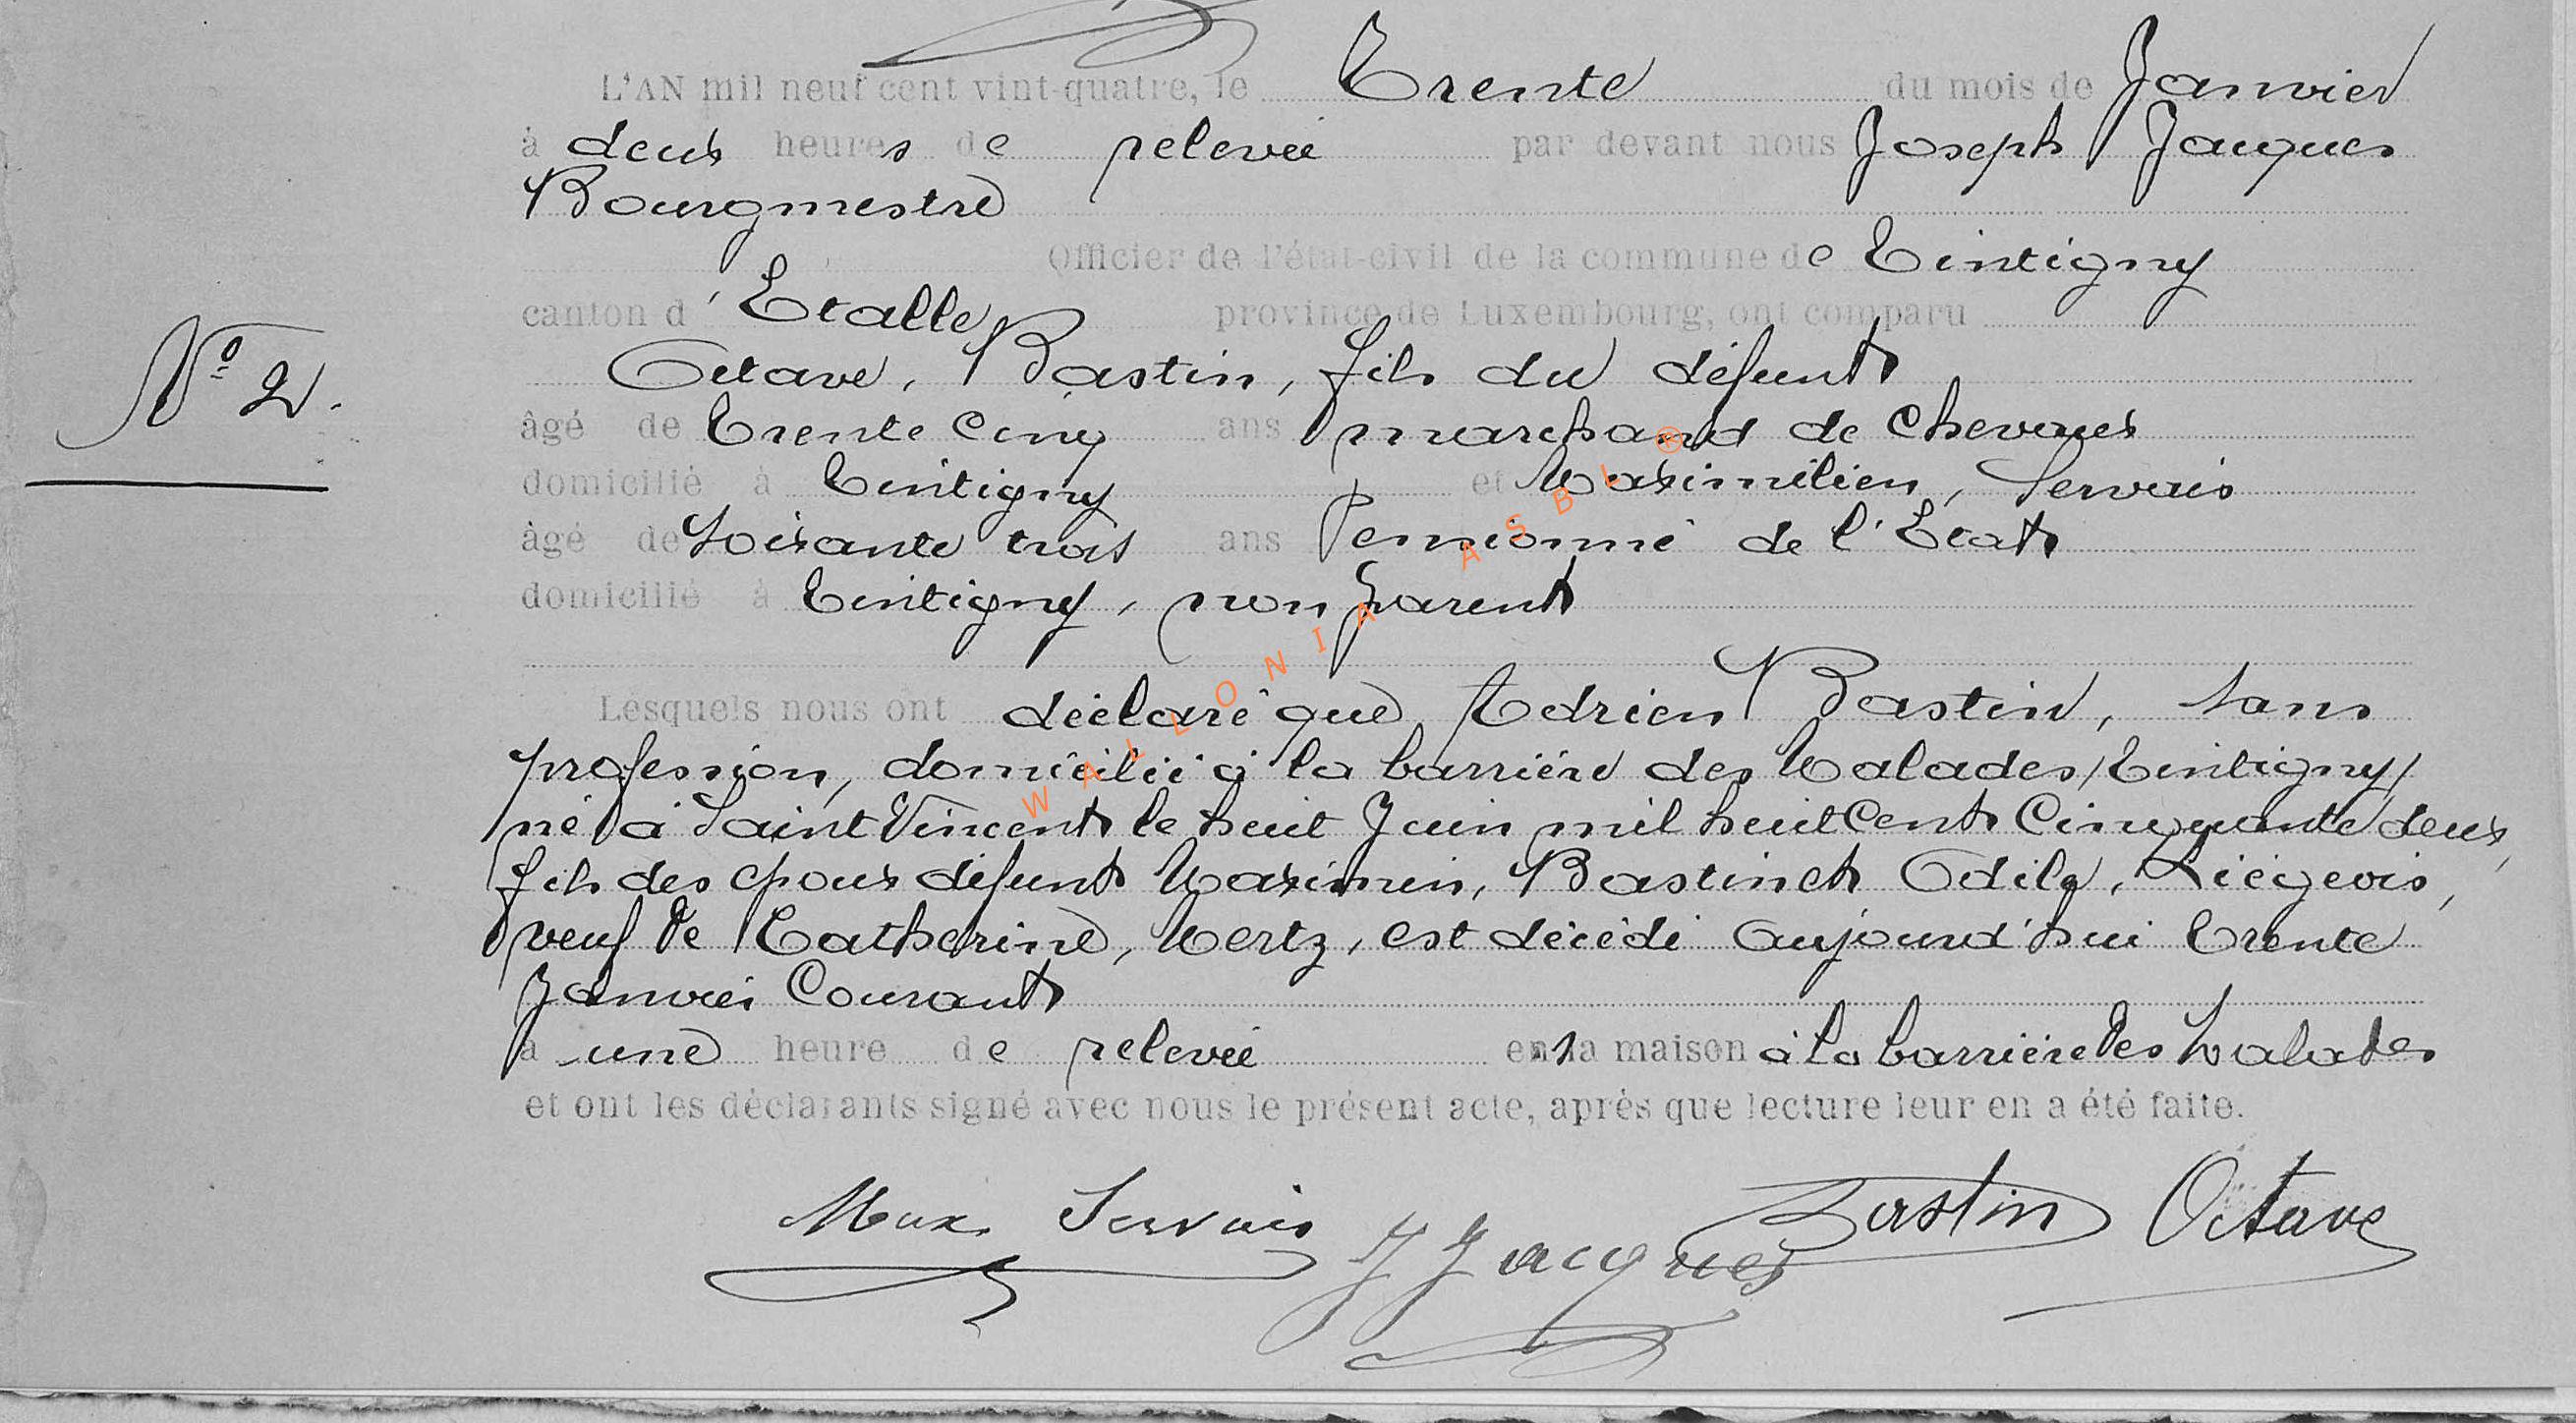 L'AN mil neuf cent vint-quatre, le Trente du mois de Janvier
à deux heures de relevée par devant nous Joseph Jacques
Bourgmestre
Officier de l'état-civil de la commune de Tintigny
canton d'Etalle province de Luxembourg, ont comparu
Octave, Bastin, fils du défunt
Nº 2.
âgé de Trente Cinq ans marchand de Chevaux
domicilié à Tintigny et Maximilien, Servais
âgé de Soixante trois ans Pensionné de l'Etat
domicilié à Tintigny, non parent
Lesquels nous ont déclaré que Adrien Bastin, sans
profession, domicilié à la barrière des Malades/Tintigny/
né à Saint Vincent le huit Juin mil huit Cent Cinquante deux,
fils des époux défunt Maximin, Bastin et Odile, Liégeois,
veuf de Catherine, Mertz, est décédé aujourd'hui Trente
Janvier Courant
à une heure de relevée en sa maison à la barrière des Malades
et ont les déclarants signé avec nous le présent acte, après que lecture leur en a été faite.
Max Servais J Jacques Bastin Octave
WALLONIA ASBL ®